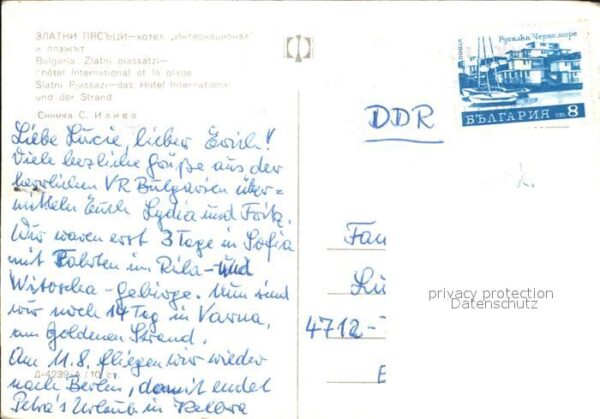 ЗЛАТНИ ПЯСЪЦИ—хотел „Интернационал“
и плажът
Bulgaria. Zlatni piassatzi—
l'hôtel International et la plage
Slatni Pjassazi—das Hotel International
und der Strand
Снимка С. Илиев
Liebe Lucie, lieber Erich!
Viele herzliche Grüße aus der
herrlichen VR Bulgarien über=
mitteln Euch Lydia und Fritz.
Wir waren erst 3 Tage in Sofia
mit Fahrten im Rila- und
Witoscha-Gebirge. Nun sind
wir noch 14 Tag in Varna,
am Goldenen Strand.
Am 11.8. fliegen wir wieder
nach Berlin, damit endet
Petra's Urlaub in
Д-4239-А / 10 ст.
Русалка Черноморе
поща
БЪЛГАРИЯ ст 8
DDR
Fam
Lü
4712-
privacy protection
Datenschutz